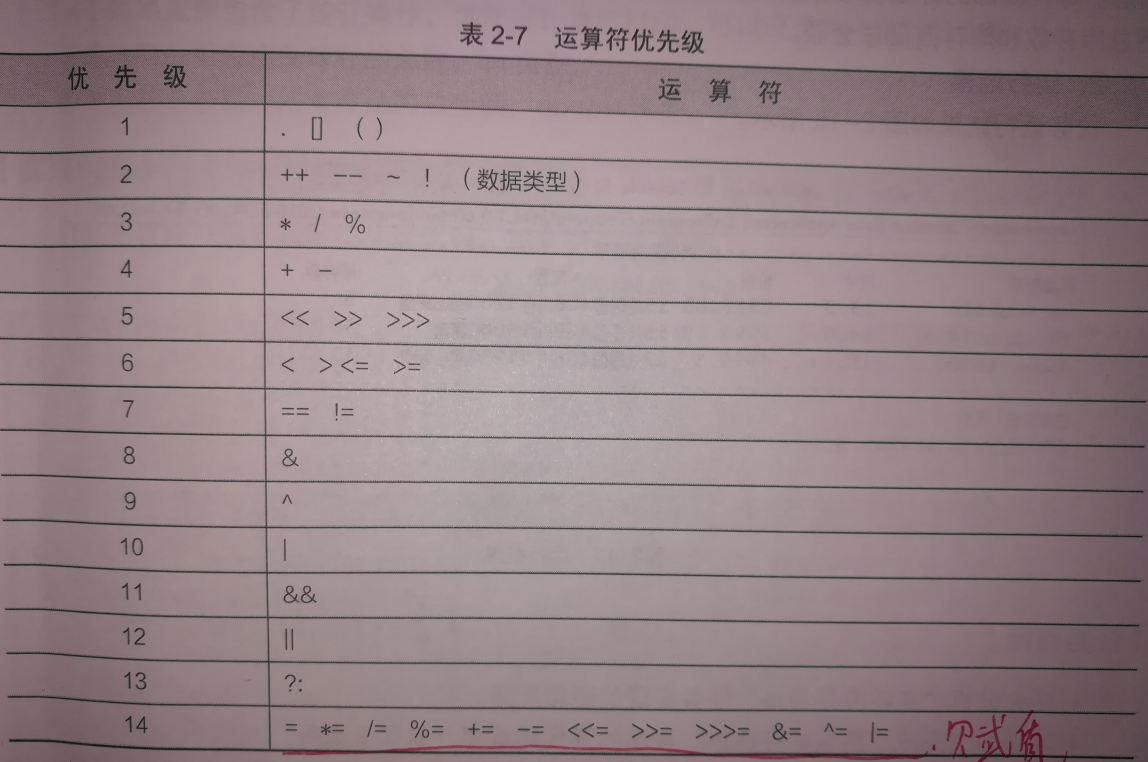 表 2-7 运算符优先级
优 先 级 运 算 符
1 . [] ( )
2 ++ -- ~ ! （数据类型）
3 * / %
4 + -
5 << >> >>>
6 < > <= >=
7 == !=
8 &
9 ^
10 |
11 &&
12 ||
13 ?:
14 = *= /= %= += -= <<= >>= >>>= &= ^= |=